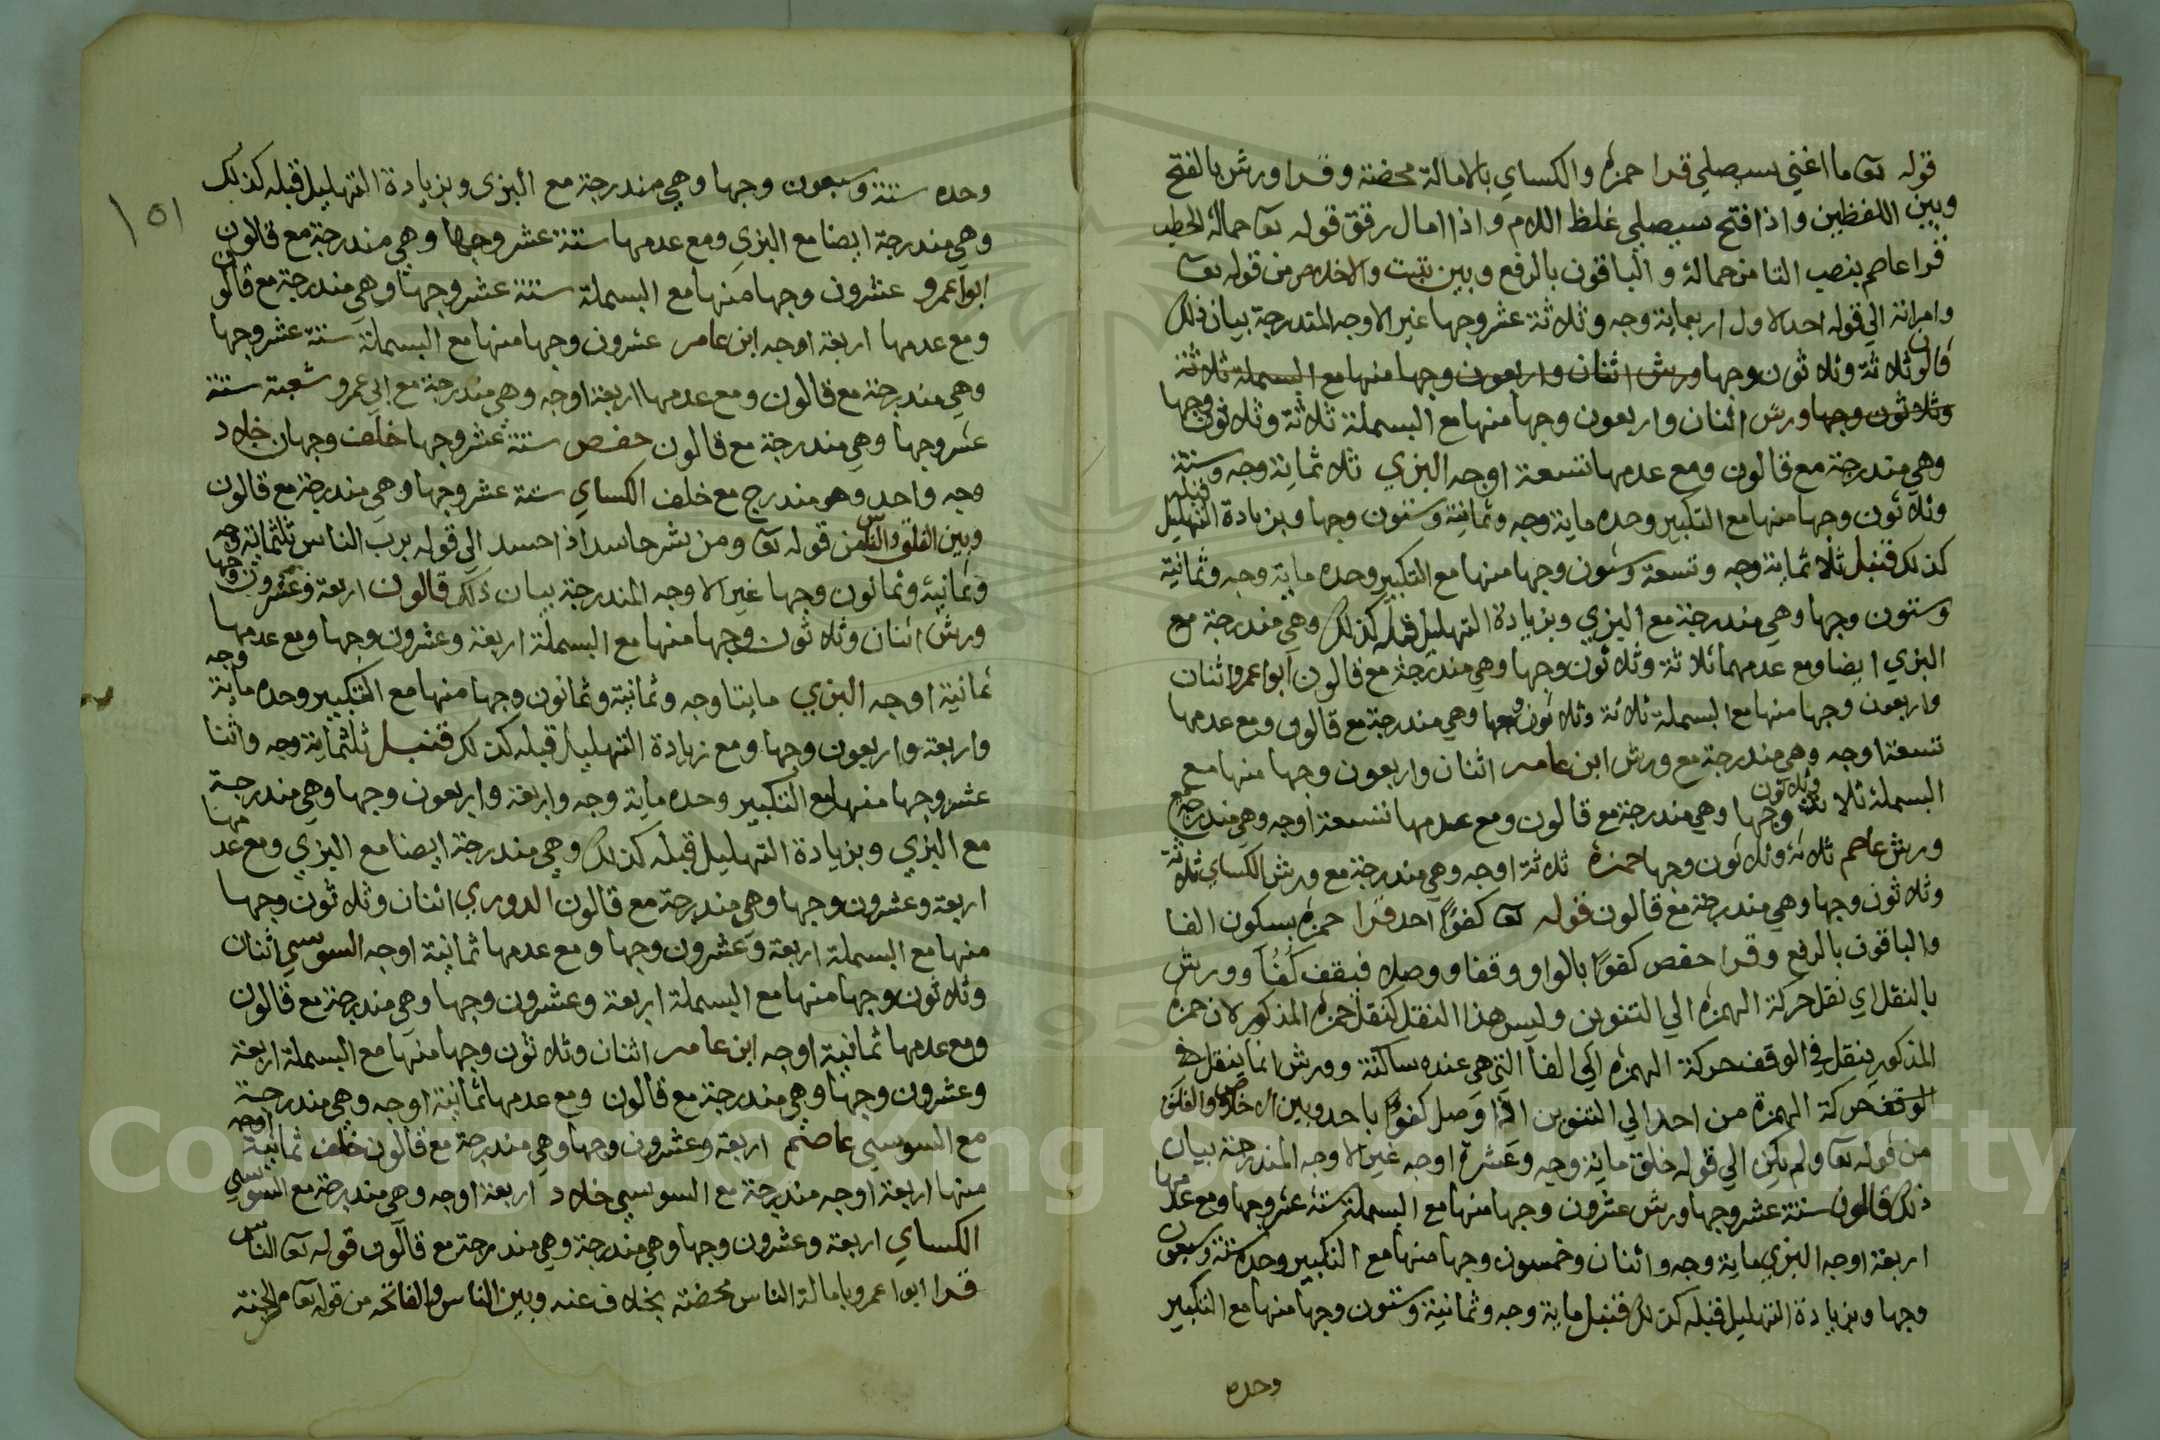 قوله تعا ما اغني سيصلي قرا حمزه والكساي بالامالة محضة وقرا ورش بالفتح
وبين اللفظين واذا فتح سيصلي غلظ اللام واذا امال رقق قوله تعا حمالة الحطب
قرا عاصم بنصب التا من حمالة والباقون بالرفع وبين تبت والاخلاص من قوله تعا
وامراته الي قوله احد الاول اربعماية وجه وثلاثة عشر وجها غير الاوجه المندرجة بيان ذلك
قالون ثلاثة وثلاثون وجها ورش اثنان واربعون وجها منها مع البسملة ثلاثة
وثلاثون وجها ورش اثنان واربعون وجها منها مع البسملة ثلاثة وثلاثون وجها
وهي مندرجة مع قالون ومع عدمها تسعة اوجه البزي ثلاثماية وجه وستة
وثلاثون وجها منها مع التكبير وحده ماية وجه وثمانية وستون وجها وبزيادة التهليل قبله
كذلك قنبل ثلاثماية وجه وتسعة وستون وجها منها مع التكبير وحده ماية وجه وثمانية
وستون وجها وهي مندرجة مع البزي وبزيادة التهليل قبله كذلك وهي مندرجة مع
البزي ايضا ومع عدمهما ثلاثة وثلاثون وجها وهي مندرجة مع قالون ابوا عمرو اثنان
واربعون وجها منها مع البسملة ثلاثة وثلاثون وجها وهي مندرجة مع قالون ومع عدمها
تسعة اوجه وهي مندرجة مع ورش ابن عامر اثنان واربعون وجها منها مع
البسملة ثلاثة وثلاثون وجها وهي مندرجة مع قالون ومع عدمها تسعة اوجه وهي مندرجة مع
ورش عاصم ثلاثة وثلاثون وجها حمزة ثلاثة اوجه وهي مندرجة مع ورش الكساي ثلاثة
وثلاثون وجها وهي مندرجة مع قالون قوله تعا كفوًا احد قرا حمزه بسكون الفا
والباقون بالرفع وقرا حفص كفوًا بالواو وقفا ووصلا فيقف كُفُاَ وورش
بالنقل اي نقل حركة الهمزه الي التنوين وليس هذا النقل كنقل حمزه المذكور لان حمزه
المذكور ينقل في الوقف حركة الهمزه الي الفا التي هي عنده ساكنة وورش انما ينقل في
الوقف حركة الهمزة من احد الي التنوين اذا وصل كفوًا باحد وبين الاخلاص والفلق
من قوله تعا ولم يكن الي قوله خلق ماية وجه وعشرة اوجه غير الاوجه المندرجة بيان
ذلك قالون ستة عشر وجها ورش عشرون وجها منها مع البسملة ستة عشر وجها ومع عدمها
اربعة اوجه البزي ماية وجه واثنان وخمسون وجها منها مع التكبير وحده ستة وسبعون
وجها وبزيادة التهليل قبله كذلك قنبل ماية وجه وثمانية وستون وجها منها مع التكبير
وحده
١٥١
وحده ستة وسبعون وجها وهي مندرجة مع البزي وبزيادة التهليل قبله كذلك
وهي مندرجة ايضا مع البزي ومع عدمها ستة عشر وجها وهي مندرجة مع قالون
ابوا عمرو عشرون وجها منها مع البسملة ستة عشر وجها وهي مندرجة مع قالون
ومع عدمها اربعة اوجه ابن عامر عشرون وجها منها مع البسملة ستة عشر وجها
وهي مندرجة مع قالون ومع عدمها اربعة اوجه وهي مندرجة مع ابي عمرو شعبة ستة
عشر وجها وهي مندرجة مع قالون حفص ستة عشر وجها خلف وجهان خلاد
وجه واحد وهو مندرج مع خلف الكساي ستة عشر وجها وهي مندرجة مع قالون
وبين الفلق والناس من قوله تعا ومن شر حاسد اذا حسد الي قوله برب الناس ثلثماية وجه
وثمانية وثمانون وجها غير الاوجه المندرجة بيان ذلك قالون اربعة وعشرون وجها
ورش اثنان وثلاثون وجها منها مع البسملة اربعة وعشرون وجها ومع عدمها
ثمانية اوجه البزي مايتا وجه وثمانية وثمانون وجها منها مع التكبير وحده ماية وجه
واربعة واربعون وجها ومع زيادة التهليل قبله كذلك قنبل ثلثماية وجه واثنا
عشر وجها منها مع التكبير وحده ماية وجه واربعة واربعون وجها وهي مندرجة
مع البزي وبزيادة التهليل قبله كذلك وهي مندرجة ايضا مع البزي ومع عدمها
اربعة وعشرون وجها وهي مندرجة مع قالون الدوري اثنان وثلاثون وجها
منها مع البسملة اربعة وعشرون وجها ومع عدمها ثمانية اوجه السوسي اثنان
وثلاثون وجها منها مع البسملة اربعة وعشرون وجها وهي مندرجة مع قالون
ومع عدمها ثمانية اوجه ابن عامر اثنان وثلاثون وجها منها مع البسملة اربعة
وعشرون وجها وهي مندرجة مع قالون ومع عدمها ثمانية اوجه وهي مندرجة
مع السوسي عاصم اربعة وعشرون وجها وهي مندرجة مع قالون خلف ثمانية اوجه
منها اربعة اوجه مندرجة مع السوسي خلاد اربعة اوجه وهي مندرجة مع السوسي
الكساي اربعة وعشرون وجها وهي مندرجة وهي مندرجة مع قالون قوله تعا الناس
قرا ابوا عمرو بامالة الناس محضة بخلاف عنه وبين الناس والفاتحه من قوله تعا من الجنة
Copyright © King Saud University
1957